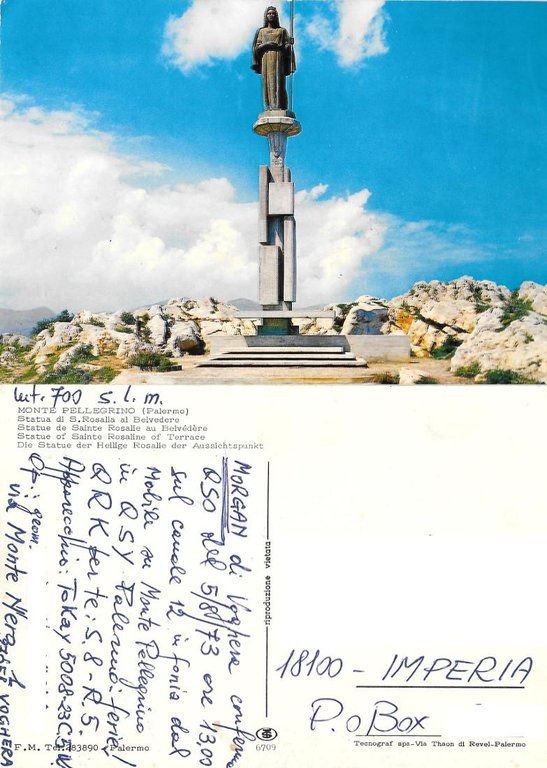 mt. 700 s.l.m.
MONTE PELLEGRINO (Palermo)
Statua di S.Rosalia al Belvedere
Statue de Sainte Rosalie au Belvédère
Statue of Sainte Rosaline of Terrace
Die Statue der Heilige Rosalie der Aussichtspunkt
MORGAN di Voghera conferma
QSO del 5/8/73 ore 13.00
sul canale 12 in fonia dal
Mobile su Monte Pellegrino
in QSY Palermo-ferie!
QRK per te: S8-R5.
Apparecchio: Tokay 5008-23C.5W.
Op.: geom.
via Monte Nero, 1
27058 VOGHERA
riproduzione vietata
18100 - IMPERIA
P.o Box
F.M. Tel.483890 - Palermo
6709
Tecnograf spa-Via Thaon di Revel-Palermo